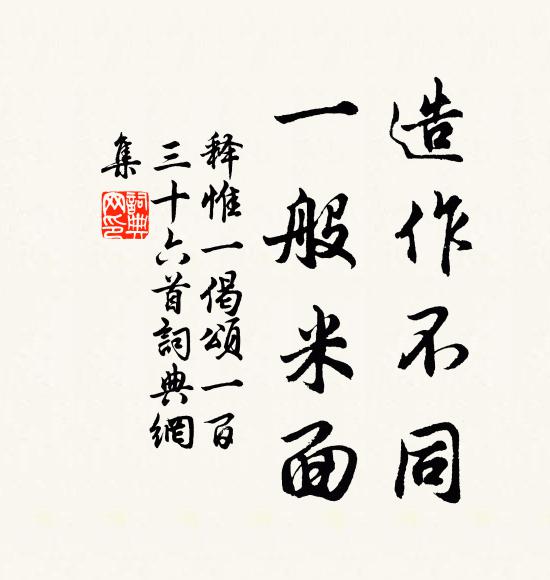 造作不同
一般米面
释惟一偈頌一百
三十六首詞典網
集
詞典
网印